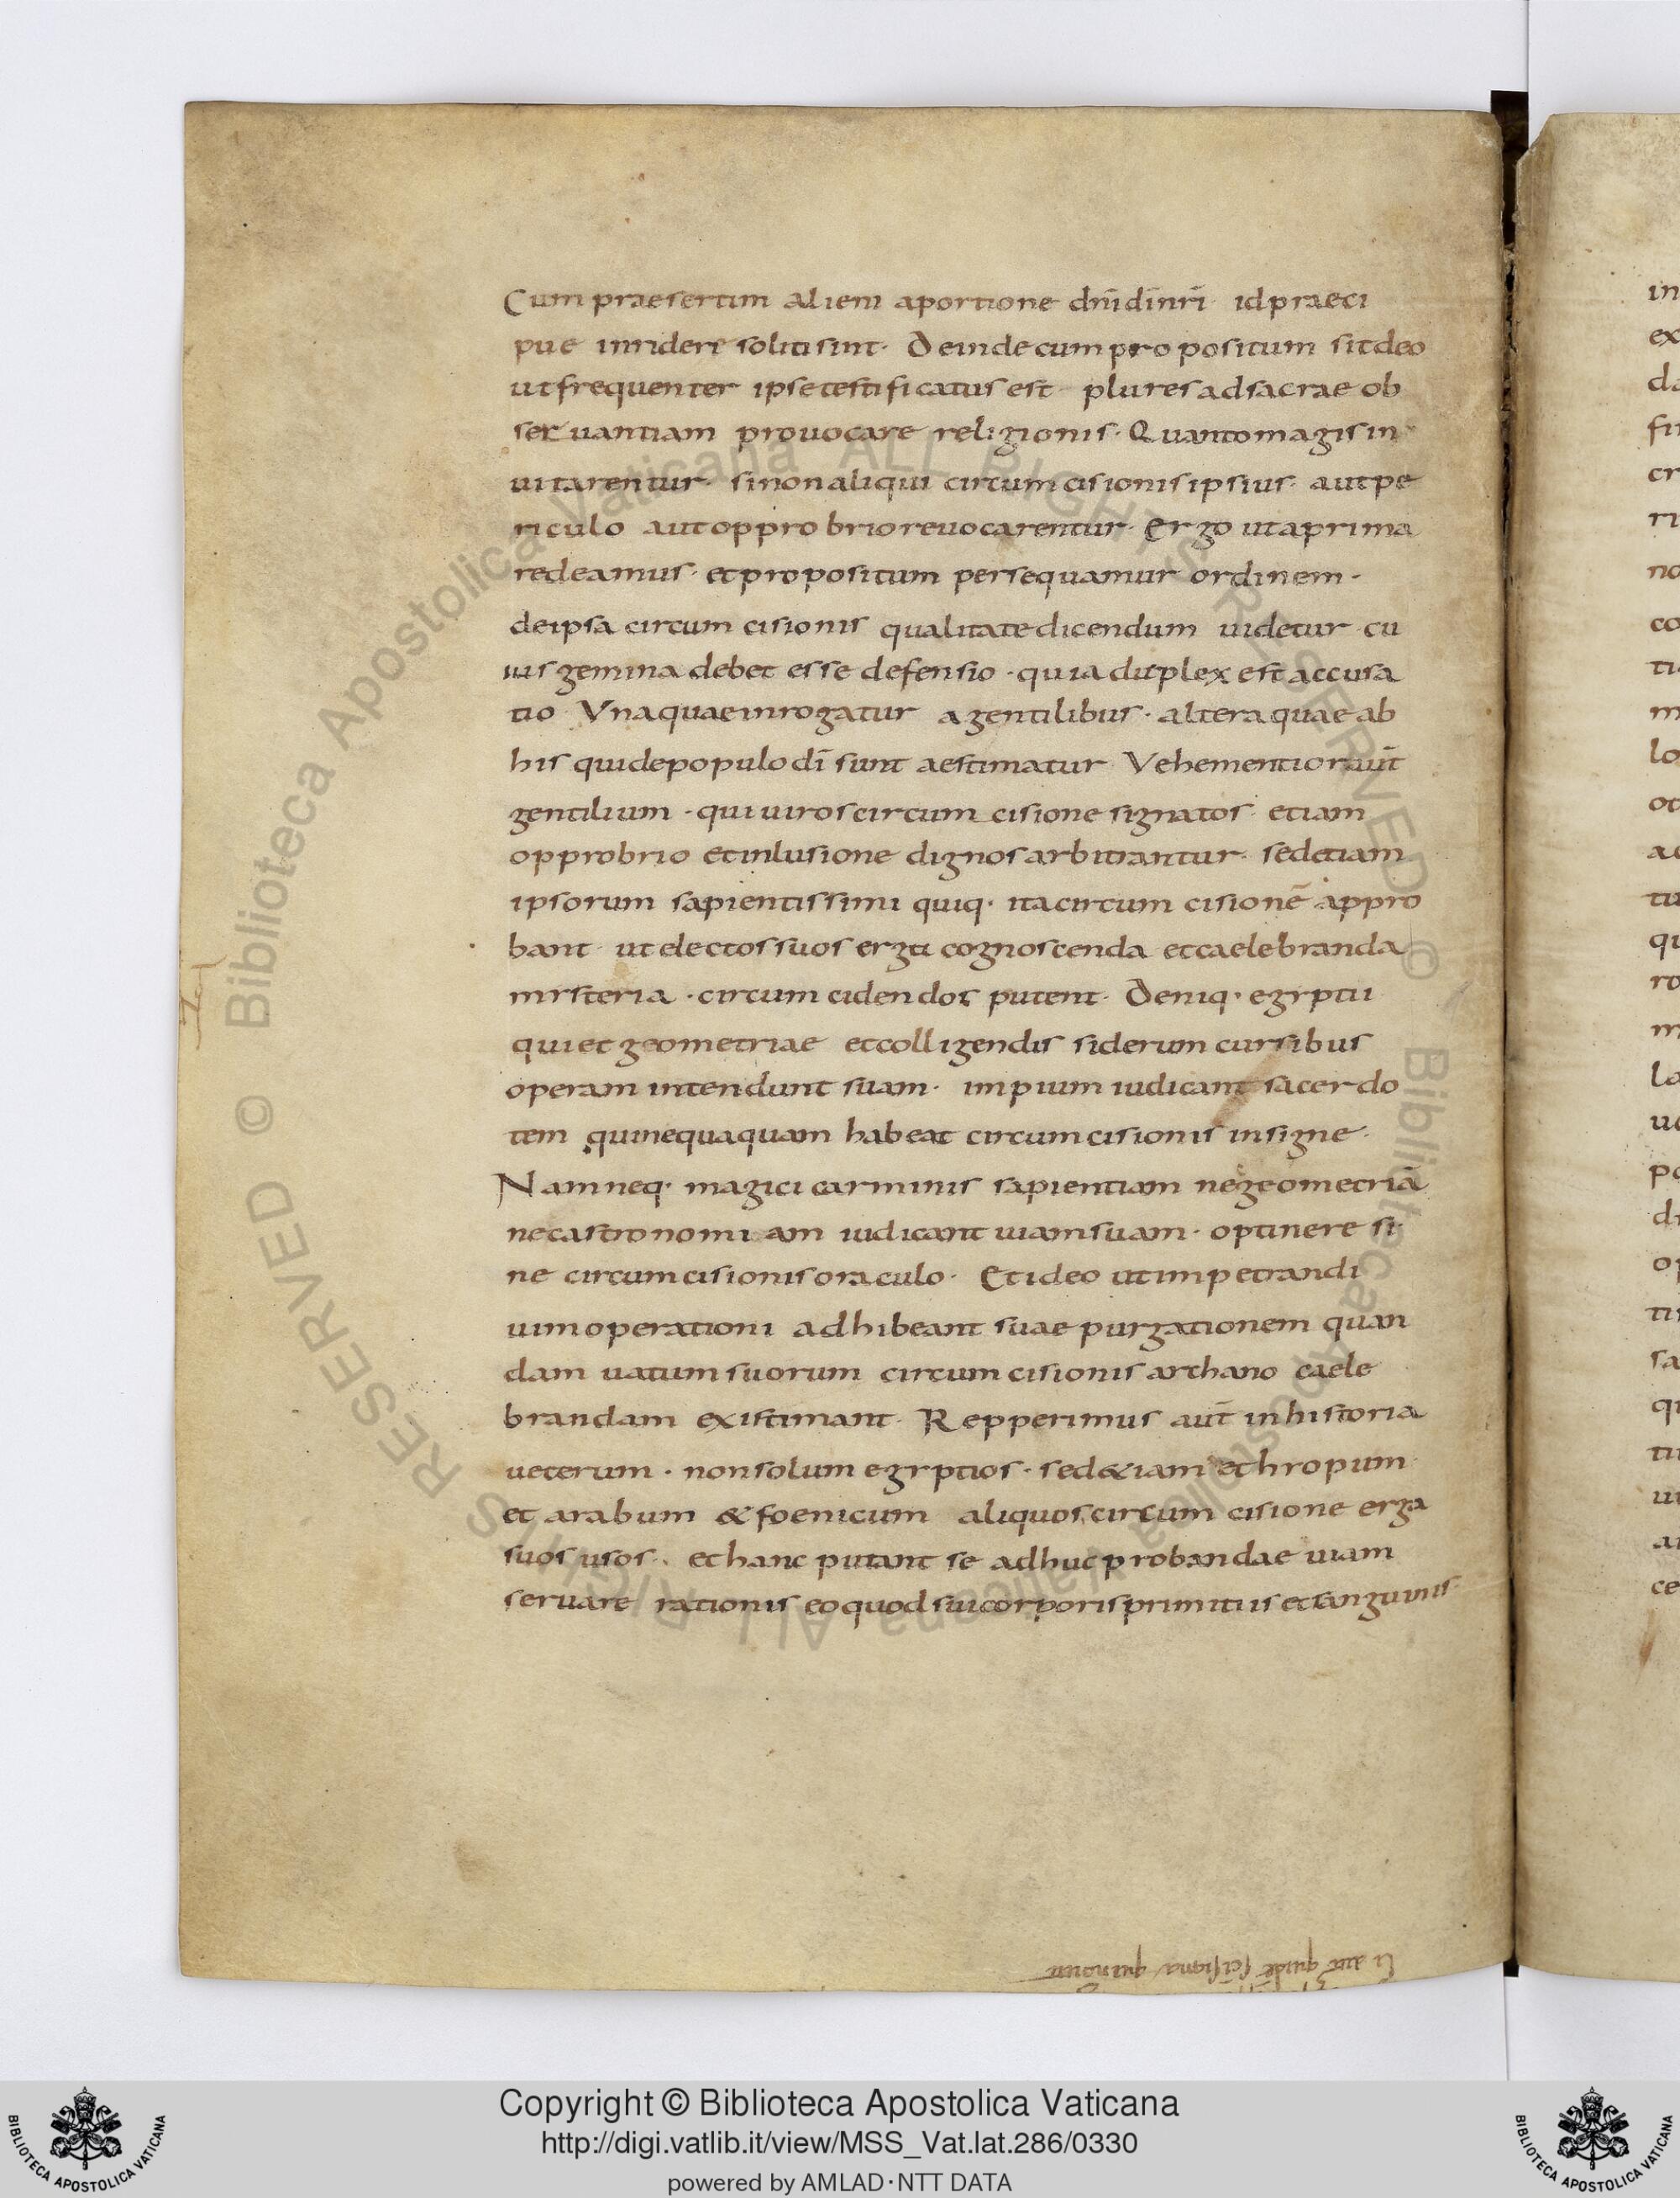 Cum praesertim alieni aportione dn̄i dī nr̄i idpraeci
pue inridere solitisint· Deindecumpropositum sitdeo
utfrequenter ipsetestificatus est· pluresadsacrae ob
seruantiam prouocare religionis· Quantomagisin
uitarentur· sinonaliqui circumcisionisipsius· autpe
riculo autopprobriorevocarentur· Ergo utaprima
redeamus· etpropositum persequamur ordinem·
deipsa circumcisionis qualitatedicendum uidetur· cu
ius gemina debet esse defensio· quia duplex est accusa
tio Vnaquaeinrogatur agentilibus· alteraquae ab
his quidepopulo dī sunt aestimatur Vehementior aut̄
gentilium· quiuiroscircumcisione signatos· etiam
opprobrio etinlusione dignosarbitrantur· sedetiam
ipsorum sapientissimi quiq· itacircumcisionē appro
bant· utelectossuos erga cognoscenda etcaelebranda
mysteria· circumcidendos putent· Deniq· egyptii
quiet geometriae etcolligendis siderum cursibus
operam intendunt suam· impium iudicant sacerdo
tem quinequaquam habeat circumcisionis insigne·
Namneq· magici carminis sapientiam negeometriā
necastronomiam iudicant uiamsuam· optinere si
ne circumcisionisoraculo· Etideo utimpetrandi
uimoperationi adhibeant suae purgationem quan
dam uatumsuorum circumcisionis archano caele
brandam existimant· Repperimus aut̄ inhistoria
ueterum· nonsolum egyptios· sed&iam ethyopum
et arabum & foenicum aliquoscircumcisione erga
suos usos· ethanc putant se adhucprobandae uiam
seruare rationis eoquodsuicorporisprimitiisetsanguinis
Copyright © Biblioteca Apostolica Vaticana
http://digi.vatlib.it/view/MSS_Vat.lat.286/0330
powered by AMLAD·NTT DATA
BIBLIOTECA APOSTOLICA VATICANA
BIBLIOTECA APOSTOLICA VATICANA
© Biblioteca Apostolica Vaticana ALL RIGHTS RESERVED © Biblioteca Apostolica Vaticana ALL RIGHTS RESERVED